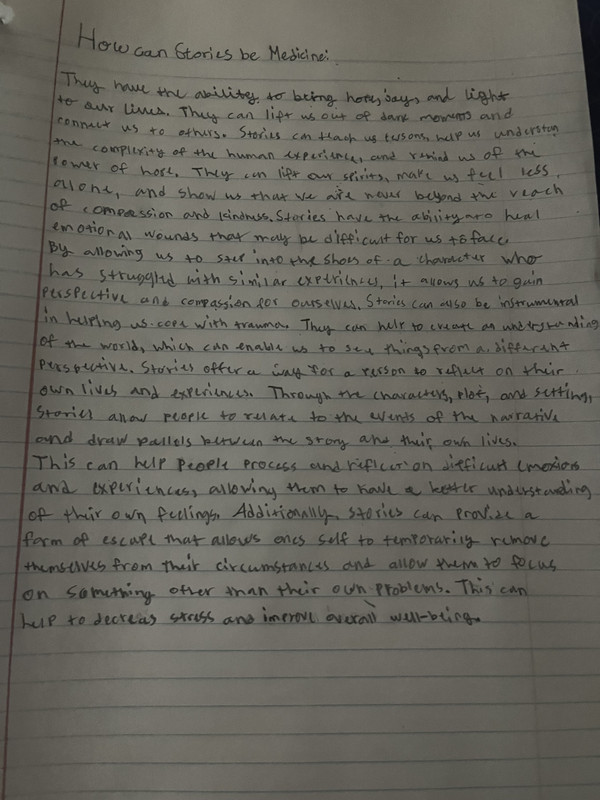 How can Stories be Medicine:
They have the ability to bring hope, joy, and light
to our lives. They can lift us out of dark moments and
connect us to others. Stories can teach us lessons, help us understan
the complexity of the human experience, and remind us of the
power of hope. They can lift our spirits, make us feel less
allone, and show us that we are never beyond the reach
of compassion and kindness. Stories have the ability to heal
emotional wounds that may be difficult for us to face.
By allowing us to step into the shoes of a character who
has struggled with similar experiences, it allows us to gain
perspective and compassion for ourselves. Stories can also be instrumental
in helping us cope with trauma. They can help to create an understanding
of the world, which can enable us to see things from a different
perspective. Stories offer a way for a person to reflect on their
own lives and experiences. Through the characters, plot, and setting,
stories allow people to relate to the events of the narrative
and draw parllels between the story and their own lives.
This can help people process and reflect on difficult emotions
and experiences, allowing them to have a better understanding
of their own feelings. Additionally, stories can provide a
form of escape that allows ones self to temporarily remove
themselves from their circumstances and allow them to focus
on something other than their own problems. This can
help to decreas stress and improve overall well-being.